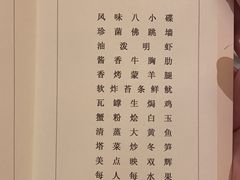 风味八小碟
珍菌佛跳墙
油泼明虾
酱香牛胸肋
香烤蒙羊腿
软炸苔条鲜鱿
瓦罉生焗鸡
蟹粉烩白玉
清蒸大黄鱼
塔菜炒冬笋
美点映双辉
每人每水果